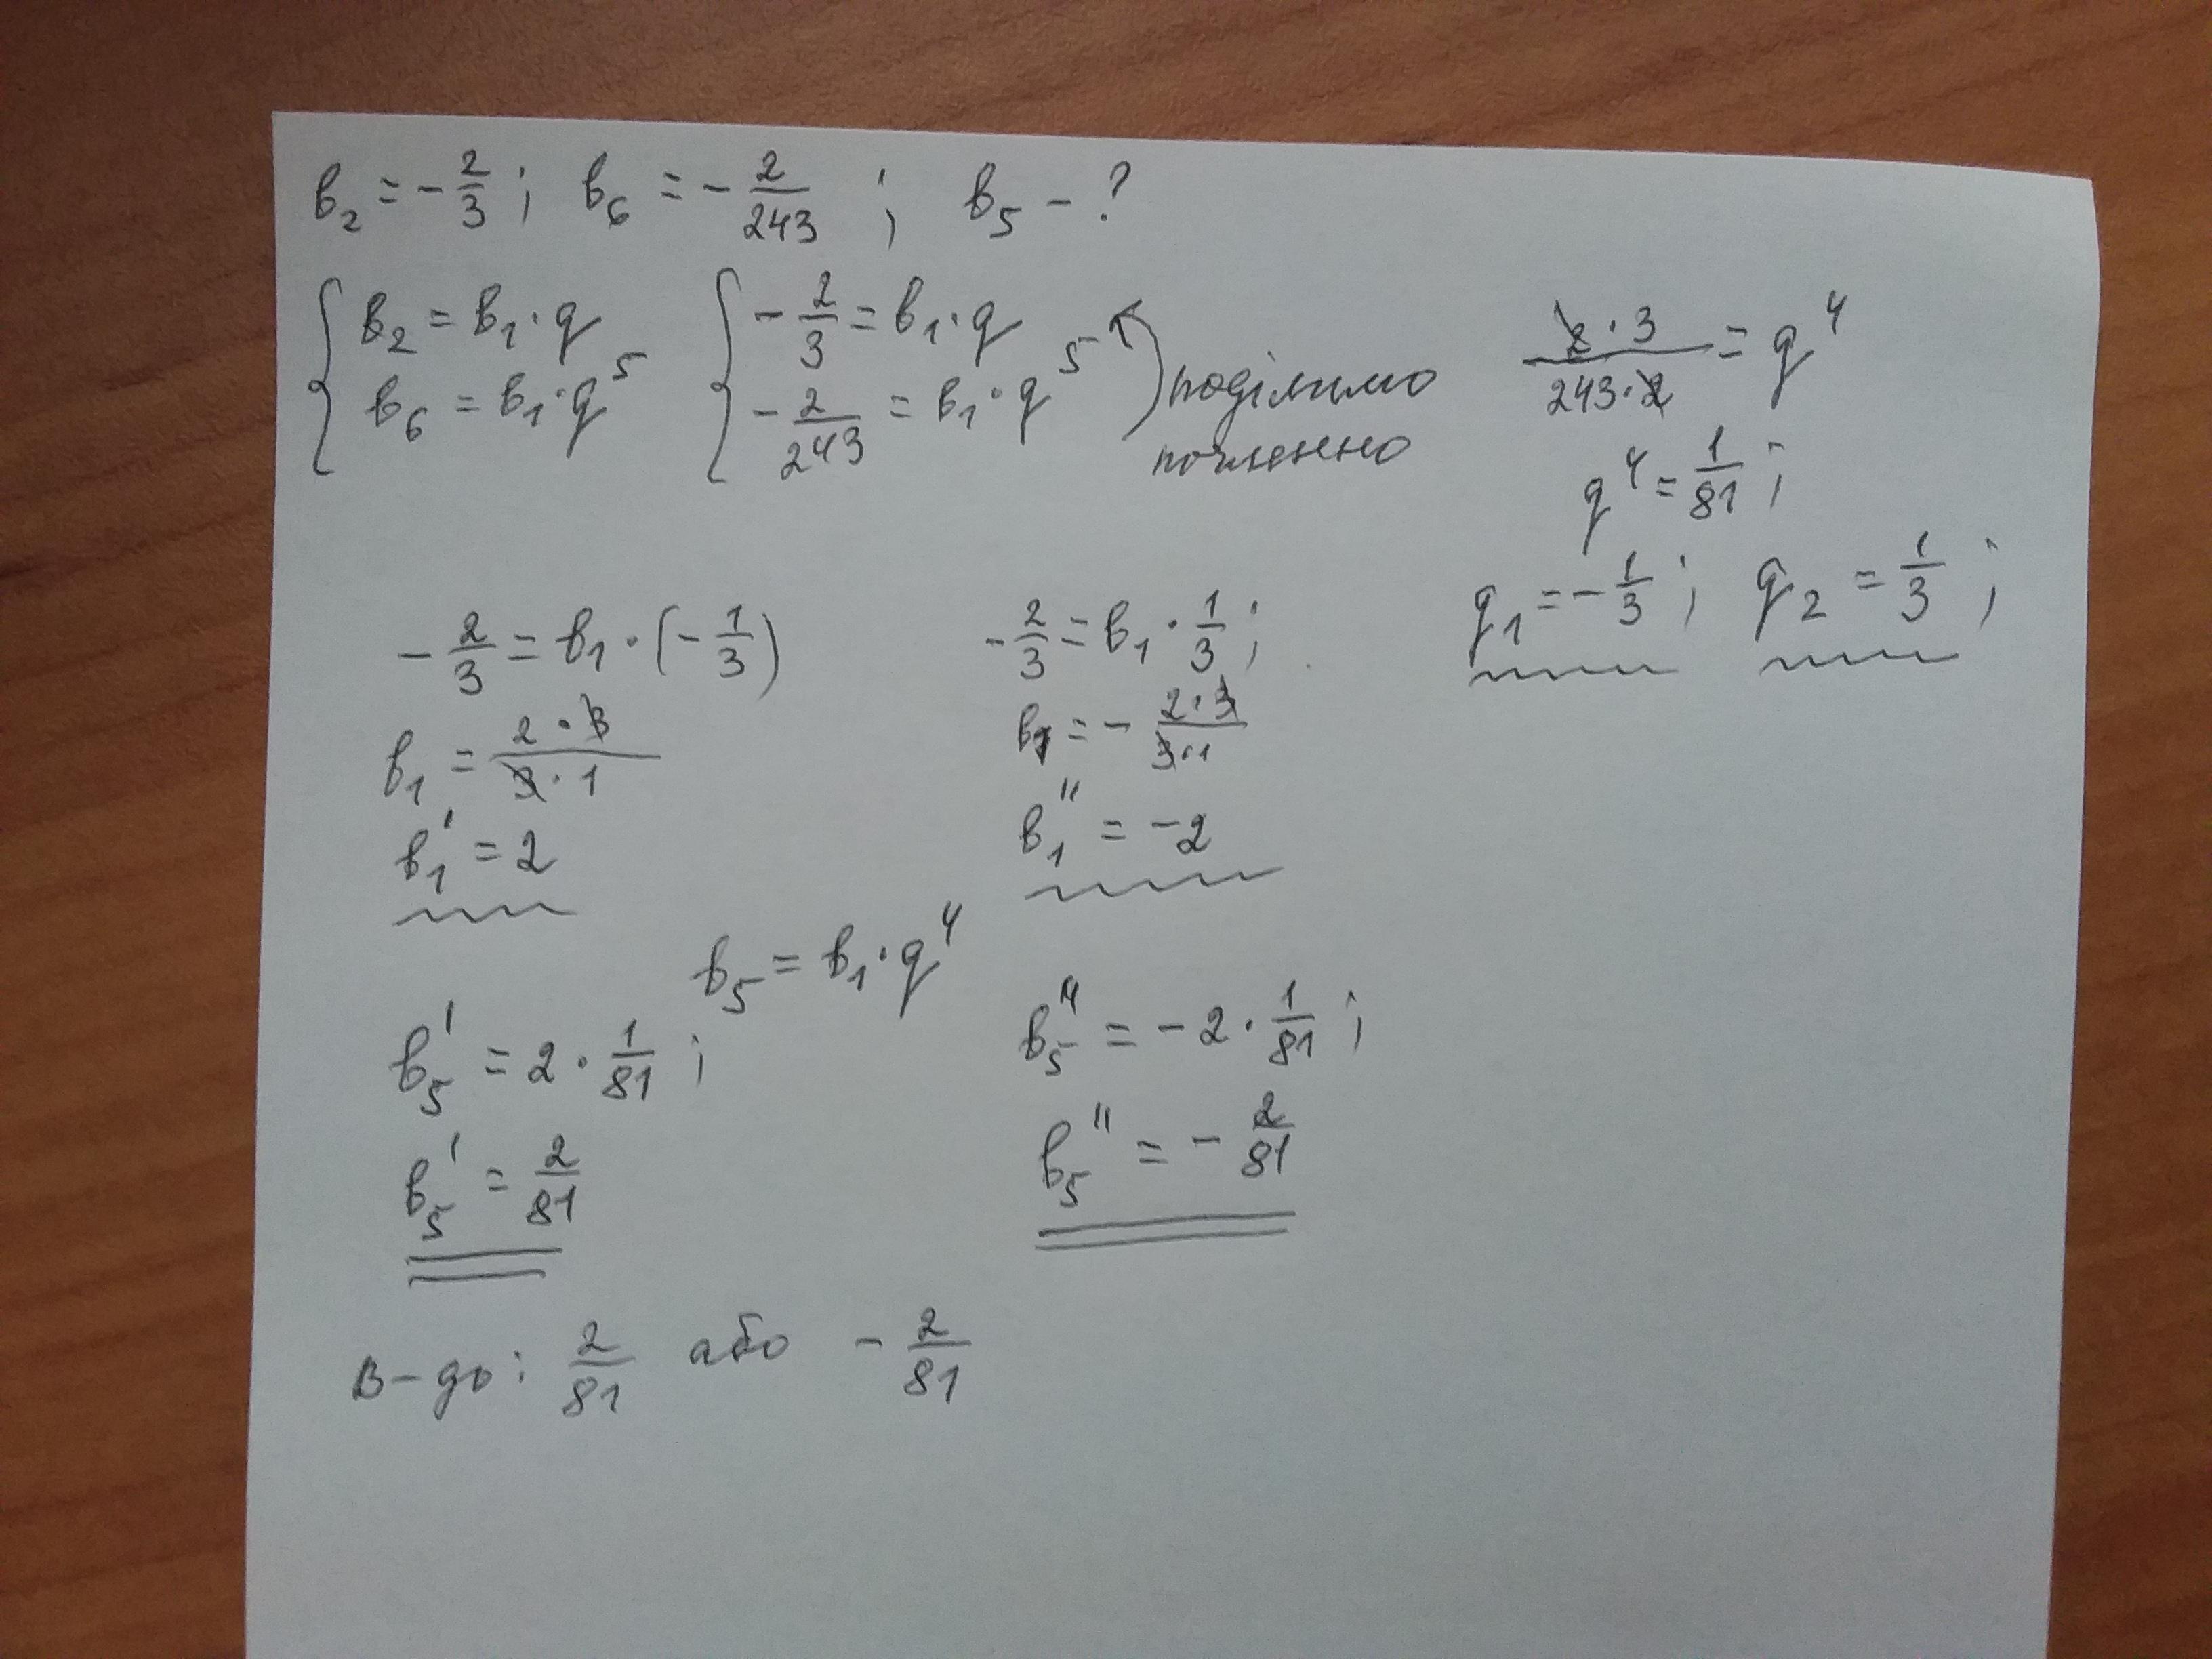 b₂ = -2/3; b₆ = -2/243; b₅ - ?
{ b₂ = b₁·q
b₆ = b₁·q⁵
{ -2/3 = b₁·q
-2/243 = b₁·q⁵
поділимо
почленно
2·3/243·2 = q⁴
q⁴ = 1/81;
q₁ = -1/3; q₂ = 1/3;
-2/3 = b₁·(-1/3)
b₁ = 2·3/3·1
b₁' = 2
-2/3 = b₁·1/3;
b₁ = -2·3/3·1
b₁'' = -2
b₅ = b₁·q⁴
b₅' = 2·1/81;
b₅' = 2/81
b₅'' = -2·1/81;
b₅'' = -2/81
В-дь: 2/81 або -2/81